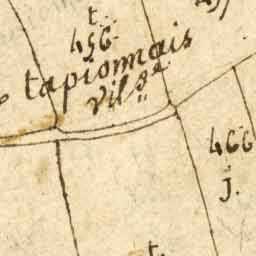 t.
456
tapionnais
vilge
466
j.
t.